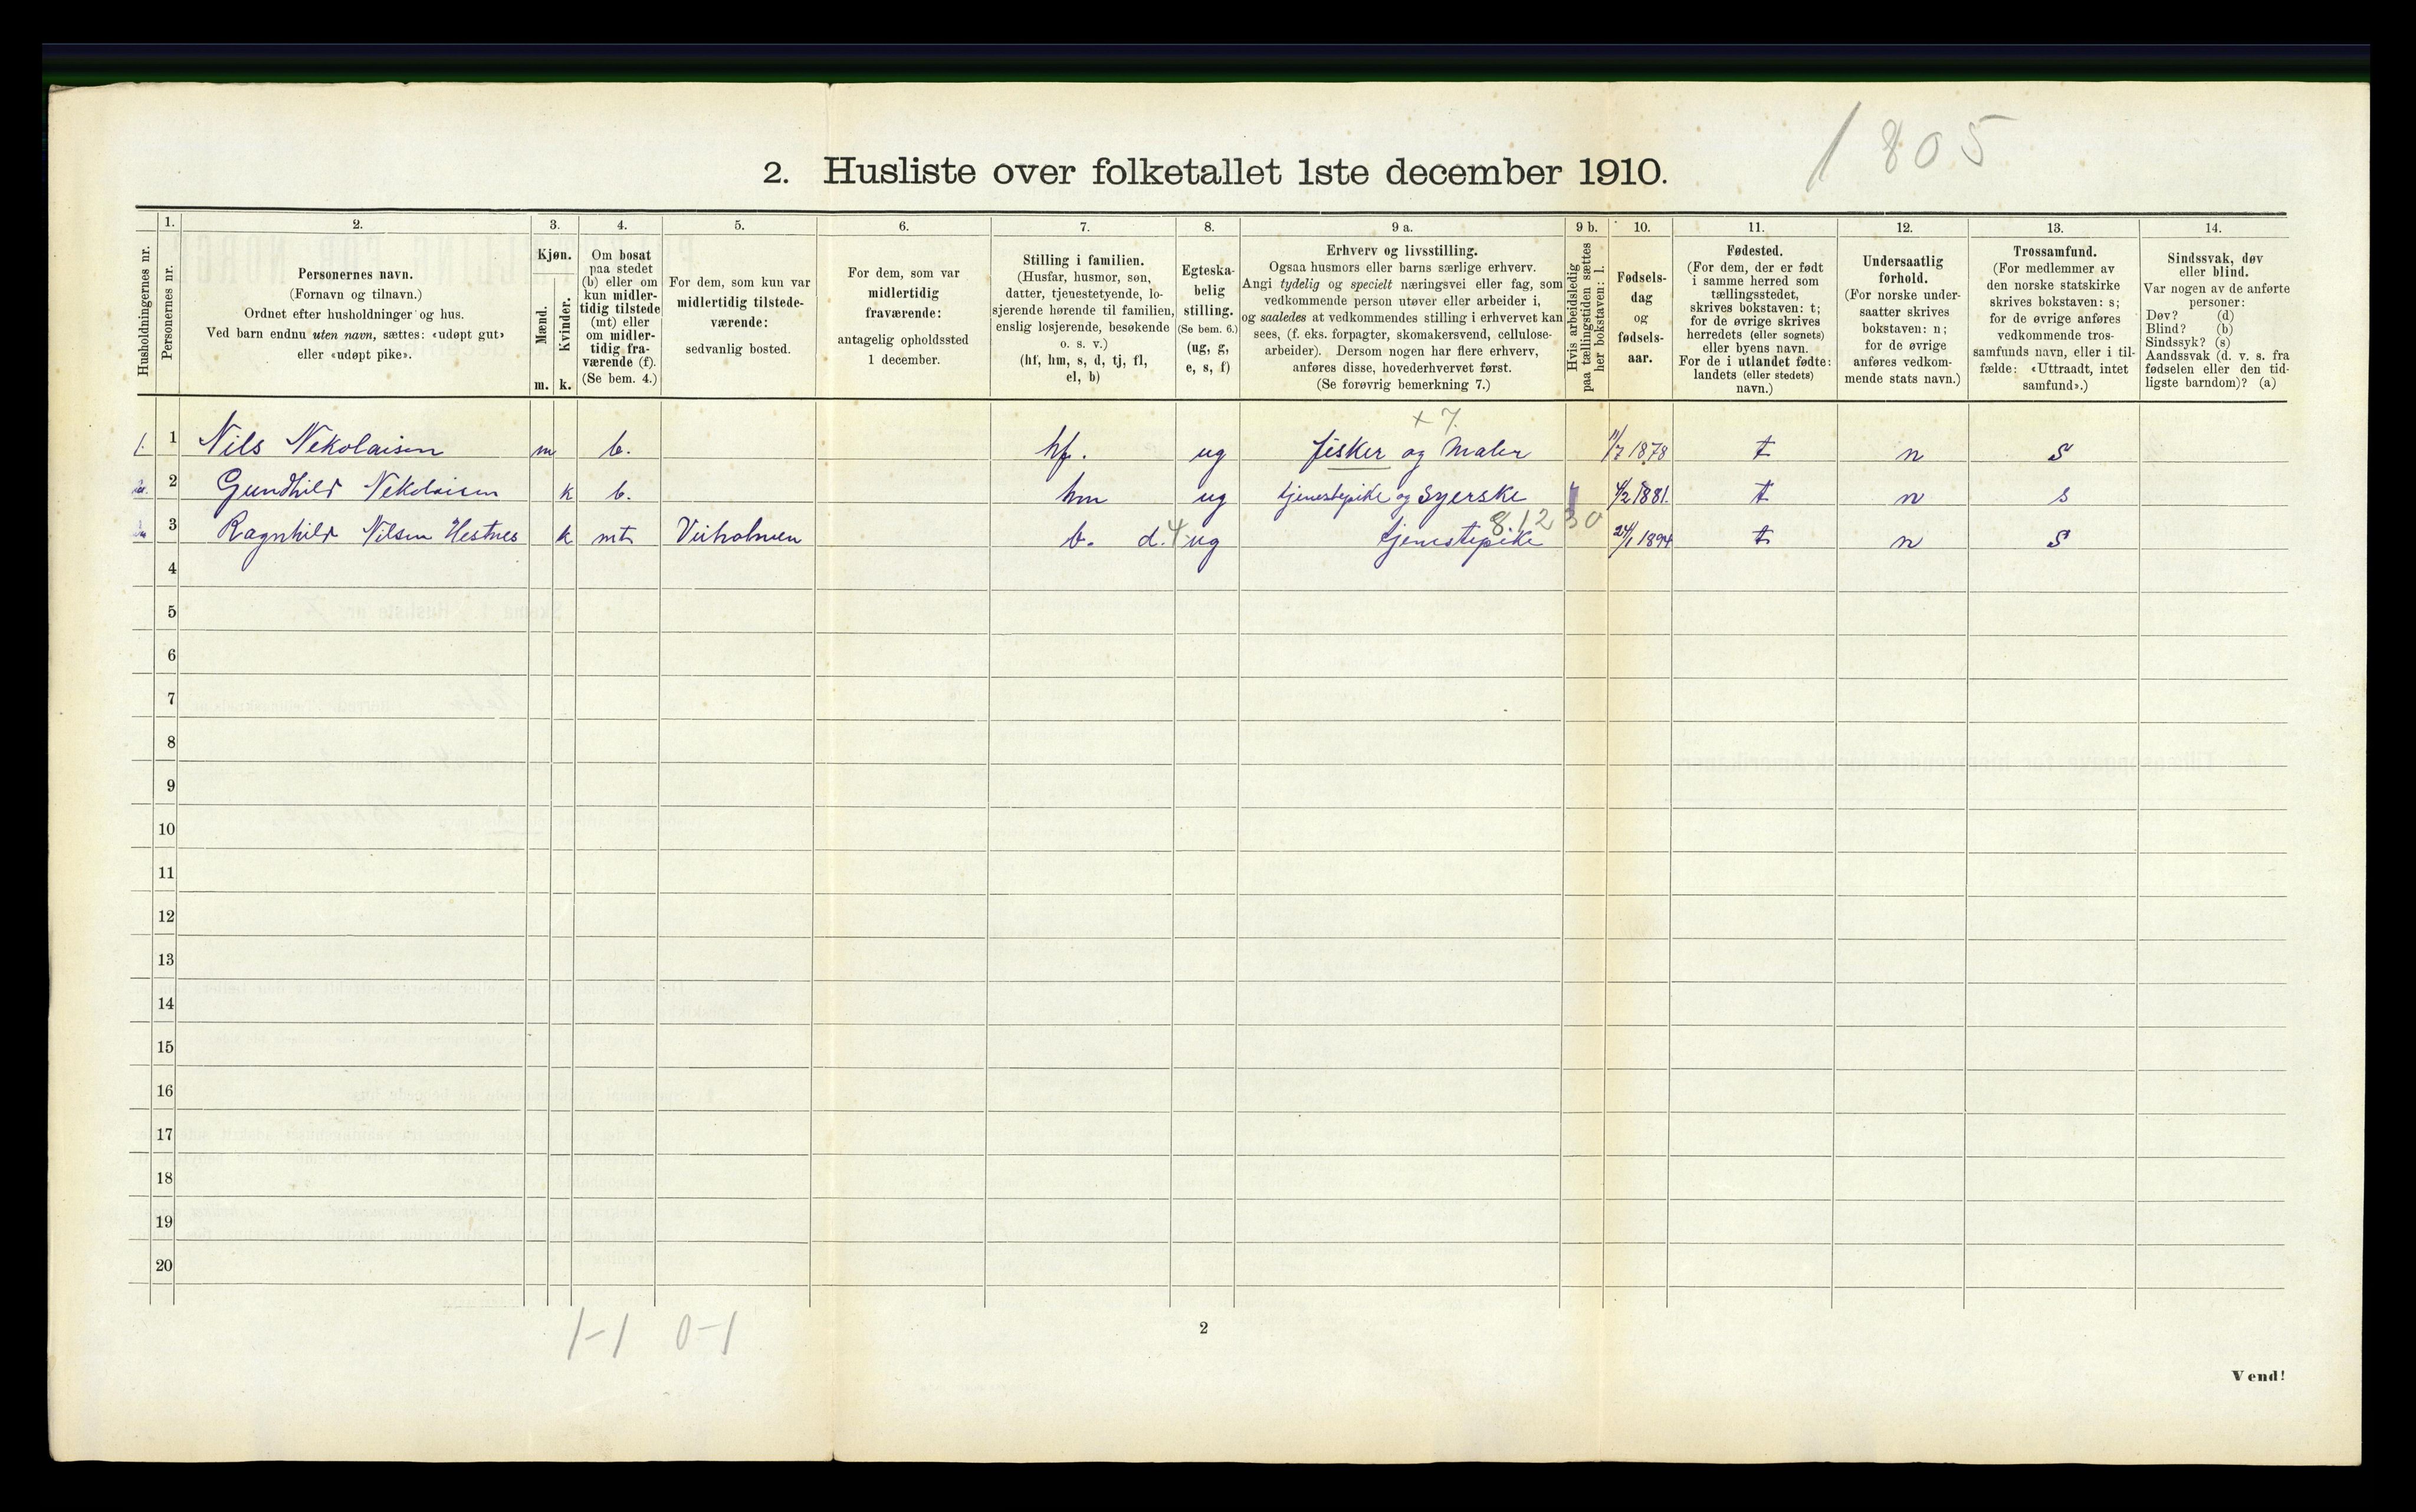 1805
2. Husliste over folketallet 1ste december 1910.
Husholdningernes nr.
1.
Personernes nr.
2.
Personernes navn.
(Fornavn og tilnavn.)
Ordnet efter husholdninger og hus.
Ved barn endnu uten navn, sættes: «udøpt gut»
eller «udøpt pike».
3.
Kjøn.
Mænd.
m.
Kvinder.
k.
4.
Om bosat
paa stedet
(b) eller om
kun midler-
tidig tilstede
(mt) eller
om midler-
tidig fra-
værende (f).
(Se bem. 4.)
5.
For dem, som kun var
midlertidig tilstede-
værende:
sedvanlig bosted.
6.
For dem, som var
midlertidig
fraværende:
antagelig opholdssted
1 december.
7.
Stilling i familien.
(Husfar, husmor, søn,
datter, tjenestetyende, lo-
sjerende hørende til familien,
enslig losjerende, besøkende
o. s. v.)
(hf, hm, s, d, tj, fl,
el, b)
8.
Egteska-
belig
stilling.
(Se bem. 6.)
(ug, g,
e, s, f)
9 a.
Erhverv og livsstilling.
Ogsaa husmors eller barns særlige erhverv.
Angi tydelig og specielt næringsvei eller fag, som
vedkommende person utøver eller arbeider i,
og saaledes at vedkommendes stilling i erhvervet kan
sees, (f. eks. forpagter, skomakersvend, cellulose-
arbeider). Dersom nogen har flere erhverv,
anføres disse, hovederhvervet først.
(Se forøvrig bemerkning 7.)
9 b.
Hvis arbeidsledig
paa tællingstiden sættes
her bokstaven: l.
10.
Fødsels-
dag
og
fødsels-
aar.
11.
Fødested.
(For dem, der er født
i samme herred som
tællingsstedet,
skrives bokstaven: t;
for de øvrige skrives
herredets (eller sognets)
eller byens navn.
For de i utlandet fødte:
landets (eller stedets)
navn.)
12.
Undersaatlig
forhold.
(For norske under-
saatter skrives
bokstaven: n;
for de øvrige
anføres vedkom-
mende stats navn.)
13.
Trossamfund.
(For medlemmer av
den norske statskirke
skrives bokstaven: s;
for de øvrige anføres
vedkommende tros-
samfunds navn, eller i til-
fælde: «Uttraadt, intet
samfund».)
14.
Sindssvak, døv
eller blind.
Var nogen av de anførte
personer:
Døv? (d)
Blind? (b)
Sindssyk? (s)
Aandssvak (d. v. s. fra
fødselen eller den tid-
ligste barndom)? (a)
+ 7.
1. 1 Nils Nekolaisen m b. hf. ug fisker og Maler 11/7 1878 t n s
2 Gundhild Nekolaisen k b. hm ug tjenestepike og Syerske 4/2 1881. t n s
8.12 30
3 Ragnhild Nilsen Hestnes k mt b. d. 4 ug tjenestepike 24/1 1894 t n s
4
5
6
7
8
9
10
11
12
13
14
15
16
17
18
19
20
1-1 0-1
2
Vend!